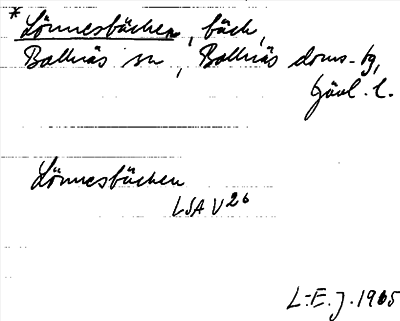 * Lönnesbäcken, bäck,
Bollnäs sn, Bollnäs doms.-tg,
Gävl. l.
Lönnesbäcken
LSA V26
L-E. J. 1965